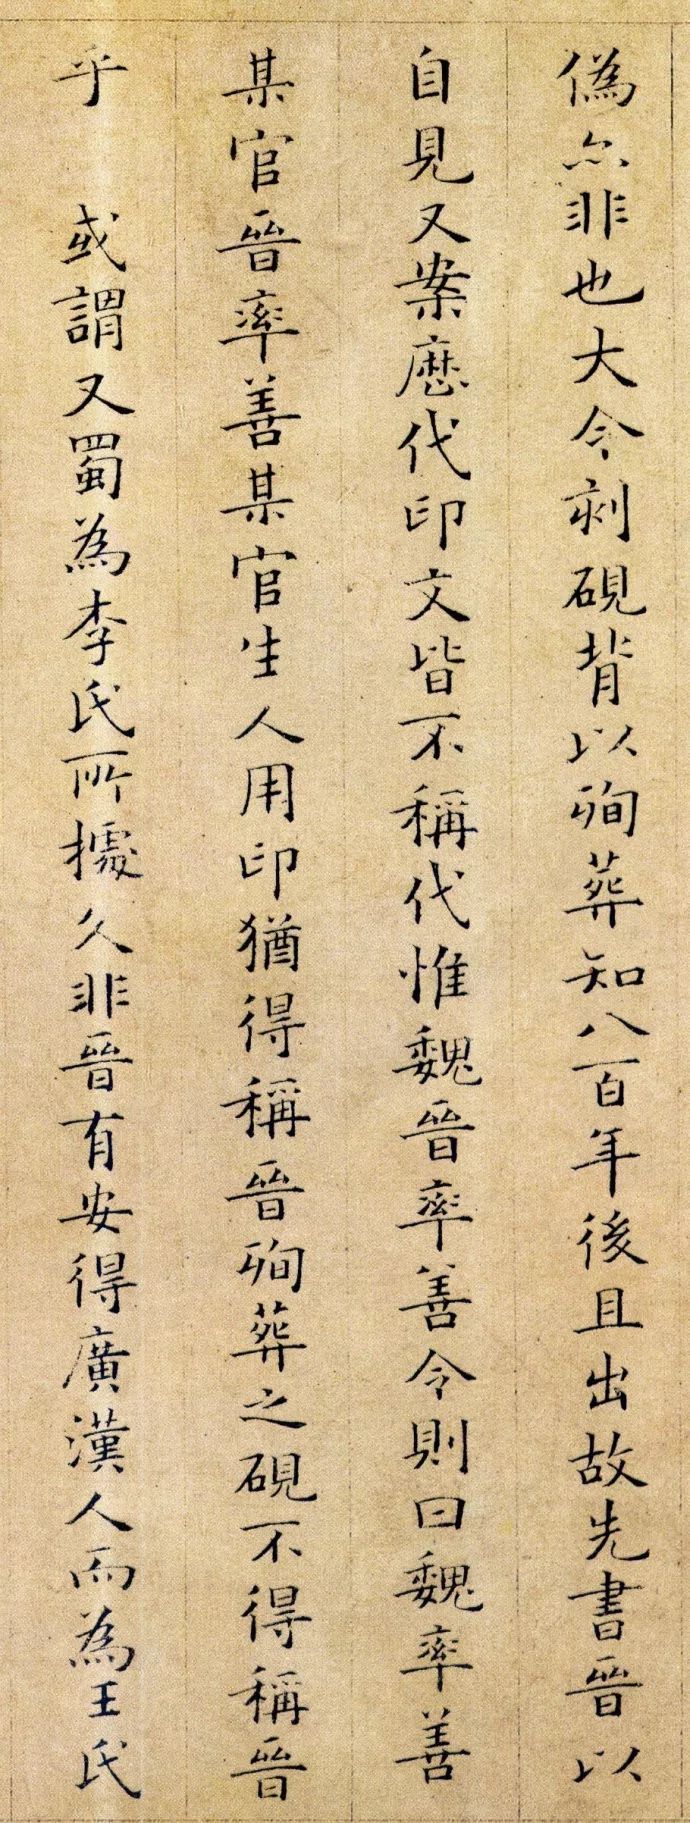 偽亦非也大令刻硯背以殉葬知八百年後且出故先書晉以
自見又案歷代印文皆不稱代惟魏晉率善令則曰魏率善
某官晉率善某官生人用印猶得稱晉殉葬之硯不得稱晉
乎　或謂又蜀為李氏所據久非晉有安得廣漢人而為王氏